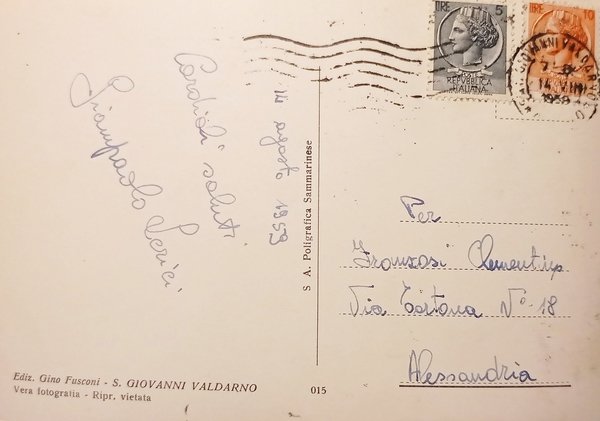 14 agosto 1959
Cordiali saluti
Giampaolo Lerici
S A. Poligrafica Sammarinese
LIRE 5
REPVBBLICA
ITALIANA
LIRE 10
S. GIOVANNI VALDARNO
14. VIII
1959
Per
Franzosi Clementina
Via Tortona N° 18
Alessandria
Ediz. Gino Fusconi - S. GIOVANNI VALDARNO
Vera fotografia - Ripr. vietata
015